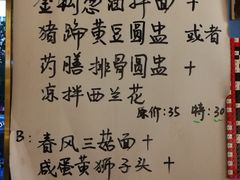 金銀葱油拌面+
猪蹄黄豆圓盅 或者
药膳排骨圓盅+
凉拌西兰花
原价:35 特:30
B:
春风三菇面+
咸蛋黄狮子头+